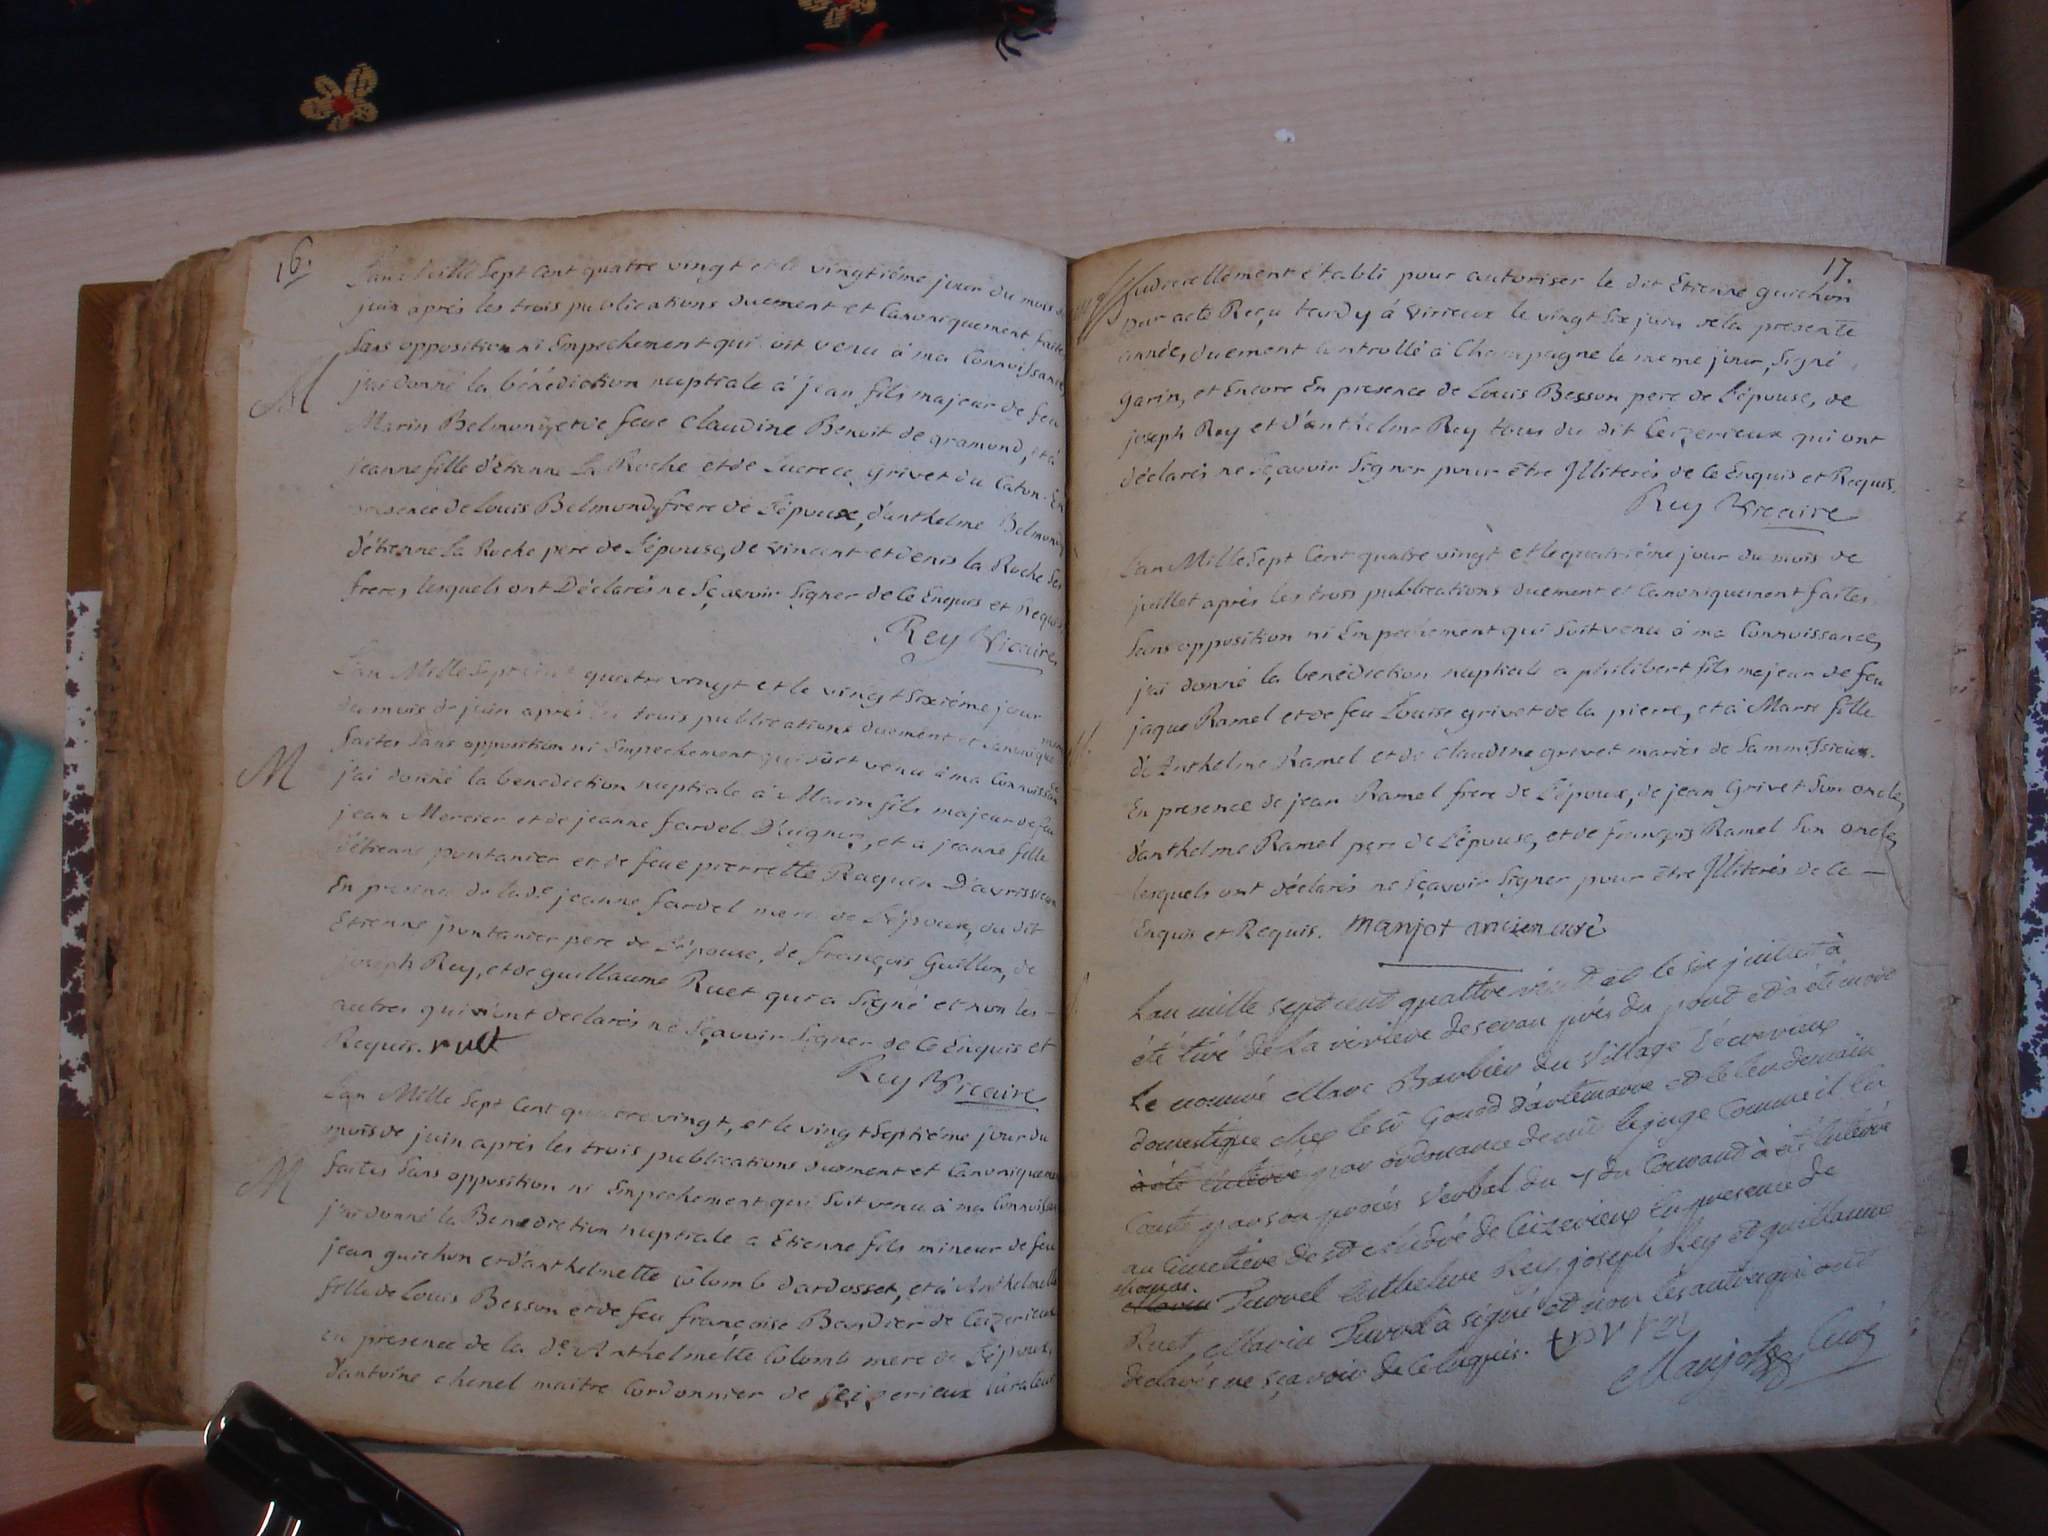 16.
L'an Mille Sept Cent quatre vingt et le vingtiéme jour du mois de
juin aprés les trois publications duement et Canoniquement faites
Sans opposition ni Empechement qui soit venu à ma Connoissance,
j'ai donné la bénédiction nuptiale à jean fils majeur de feu
M
Marin Belmondy et de feue Claudine Benoit de gramond, et à
jeanne fille d'Etienne La Roche et de Lucrece grivet du Caton. En
présence de Louis Belmondy frere de l'époux, d'anthelme Belmondy
d'étienne La Roche pere de l'épouse, de vincent et denis la Roche Ses
freres, lesquels ont Déclarés ne Sçavoir Signer de Ce Enquis et Requis
Rey Vicaire
L'an Mille Sept Cent quatre vingt et le vingt Sixiéme jour
du mois de juin aprés les trois publications duement et Canoniquement
faites Sans opposition ni Empechement qui soit venu à ma Connoissance
M
j'ai donné la benediction nuptiale à Marin fils majeur de feu
jean Mercier et de jeanne fardel et à jeanne fille
d'étienne pontanier et de feue pierrette Raquin D'avrissieu
En presence de lade jeanne fardel mere de l'époux, du dit
Etienne pontanier pere de l'épouse, de françois Guillon, de
joseph Rey, et de guillaume Ruet qui a Signé et non les
autres qui n'ont declarés ne Sçavoir Signer de Ce Enquis et
Requis. ruet
Rey Vicaire
L'an Mille Sept Cent quatre vingt, et le vingt Septiéme jour du
mois de juin aprés les trois publications duement et Canoniquement
faites Sans opposition ni Empechement qui Soit venu à ma Connoissance
M
j'ai donné la Benediction nuptiale a Etienne fils mineur de feu
jean guichon et d'anthelmette Colomb d'ardosset, et à Anthelmette
fille de Louis Besson et de feu françoise Bandier de Ceizerieux
en presence de la de Anthelmette Colomb mere de l'époux,
d'antoine chenel maître Cordonnier de Ceizerieux Curateur
17.
judiciellement établi pour autoriser le dit Etienne guichon
par acte Reçu tendy à Virieux le vingt Six juin de la presente
année, duement Controllé à Champagne le meme jour, Signé
garin, et Encore En presence de Louis Besson pere de l'épouse, de
joseph Rey et d'anthélme Rey tous du dit Ceizerieux qui ont
déclarés ne Sçavoir Signer pour être Jlliterés de Ce Enquis et Requis.
Rey Vicaire
L'an Mille Sept Cent quatre vingt et le quatriéme jour du mois de
juillet aprés les trois publications duement et Canoniquement faites
Sans opposition ni Empechement qui Soit venu à ma Connoissance,
j'ai donné la benediction nuptiale a philibert fils majeur de feu
jaque Ramel et de feu Louise grivet de la pierre, et à Marie fille
d'Anthelme Ramel et de Claudine grivet mariés de Sammissieux.
En presence de jean Ramel frere de l'époux, de jean Grivet Son oncle,
d'anthelme Ramel pere de l'épouse, et de françois Ramel Son oncle,
lesquels ont déclarés ne Sçavoir Signer pour être Jlliterés de Ce
Enquis et Requis. manjot ancien curé
L'an mille sept cent quattre vingt et le six juillet à
été tiré de la riviere de seran prés du pont et à été
le nommé Marc Barbier du village
domestique chez le sr Gonod d'artemare et le lendemain
à été enlevé par ordonnance de mr le juge Comme il
Conste par son procés verbal du 7 du Courant à été
au Cimetiere de Ceizerieux En presence de
Furvel Anthelme Rey, joseph Rey et guillaume
Ruet, Marin à signé et non les autres qui ont
declarés ne sçavoir de Ce Enquis.
Manjot Curé